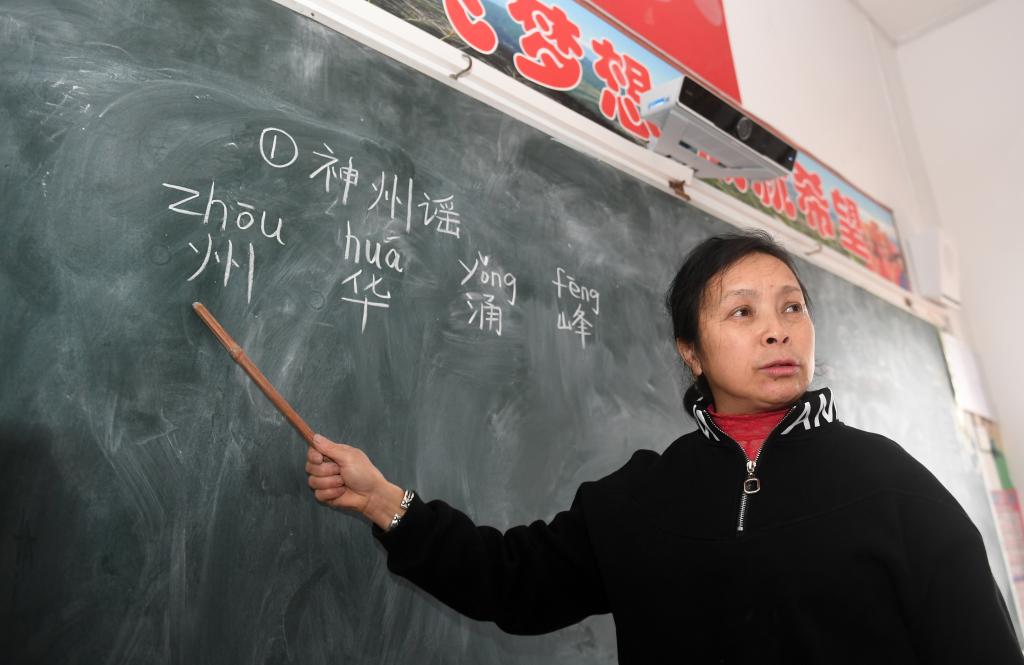 梦想
希望
① 神州谣
zhōu huā yǒng fēng
州 华 涌 峰